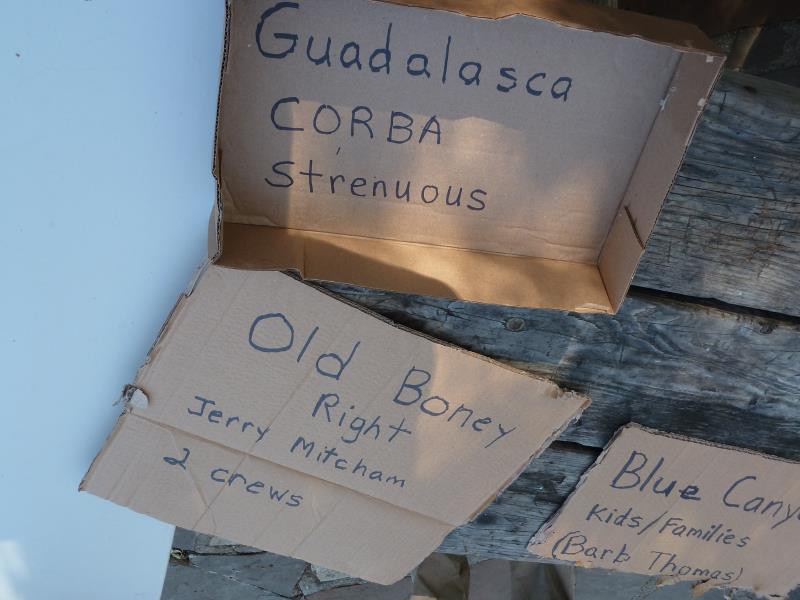 Guadalasca
CORBA
Strenuous
Old Boney
Right
Jerry Mitcham
2 crews
Blue
Kids/Families
(Barb Thomas)